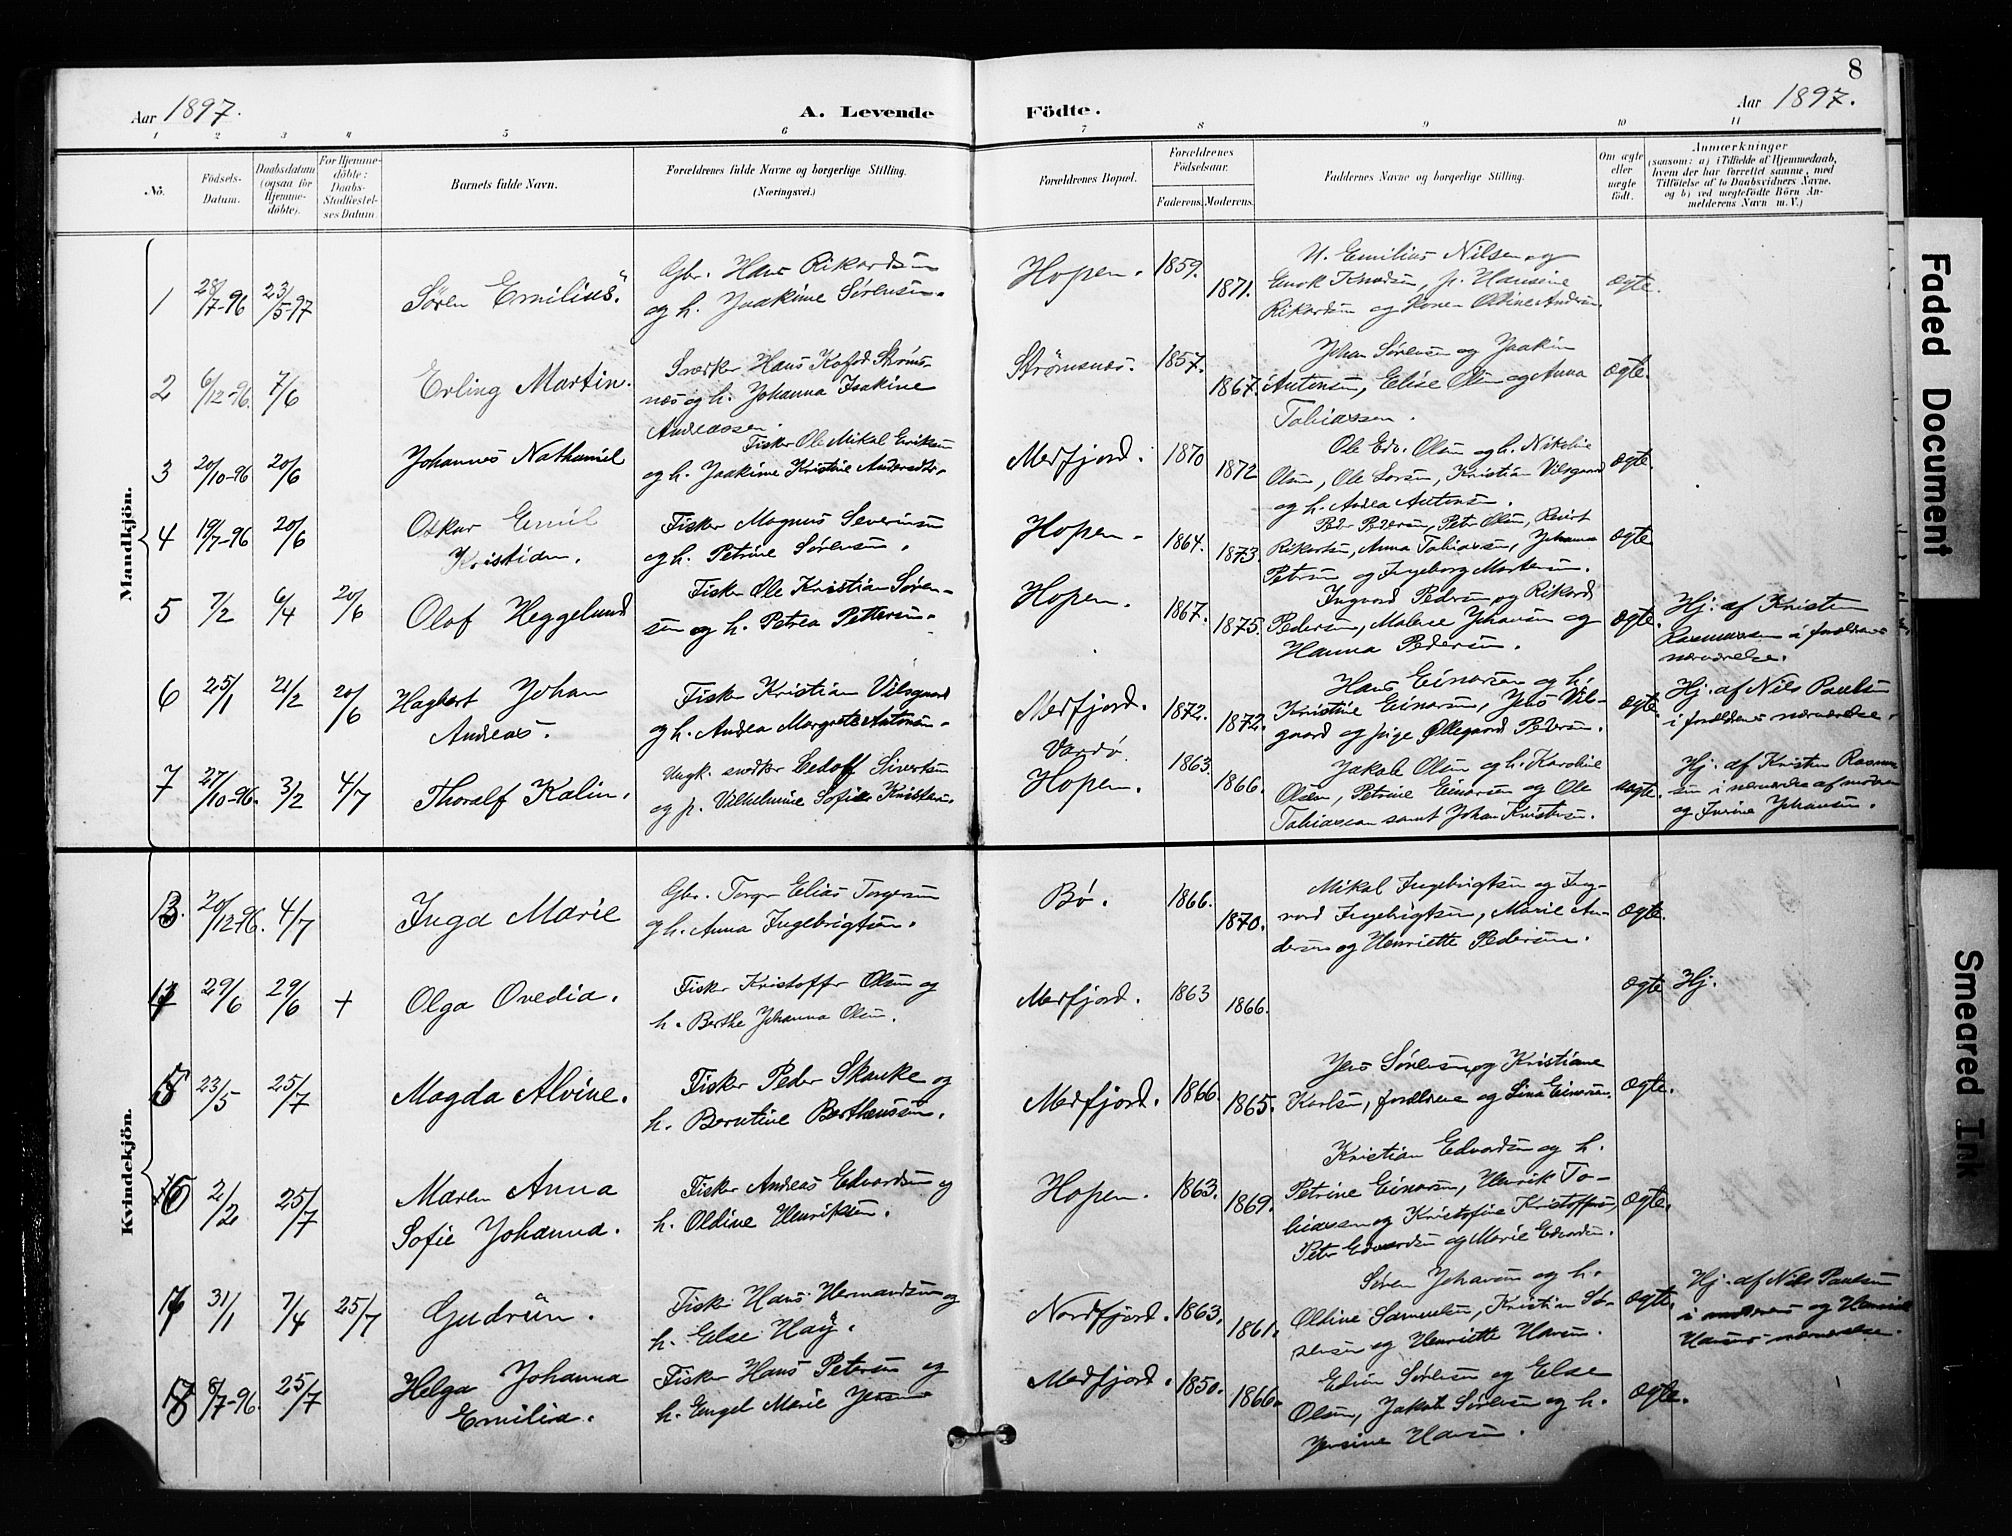 8
Aar 1897.
A. Levende Födte.
Aar 1897.
1 2 3 4 5 6 7 8 9 10 11
No.
Födsels-
Datum.
Daabsdatum
(ogsaa for
Hjemme-
döbte).
For Hjemme-
döbte:
Daabs-
Stadfæstel-
ses Datum.
Barnets fulde Navn.
Forældrenes fulde Navne og borgerlige Stilling.
(Næringsvei.)
Forældrenes Bopæl.
Forældrenes
Födselsaar.
Faderens. Moderens.
Faddernes Navne og borgerlige Stilling.
Om ægte
eller
uægte
födt.
Anmærkninger
(saasom: a) i Tilfælde af Hjemmedaab,
hvem der har forrettet samme, med
Tilföielse af to Daabsvidners Navne,
og b) ved uegtefödte Börn An-
melderens Navn m. V.)
Mandkjön.
1 28/7-96 23/5-97 Søren Emilius.
Gbr. Hans Rikardsen
og h. Joakime Sørensen.
Hopen. 1859. 1871.
U. Emilius Nilsen og
Enok Knudsen, p. Hansine
Rikardsen og Konen Oldine Andersen
ægte.
2 6/12-96. 7/6 Erling Martin.
Snedker Hans Kofod Strøms-
næs og h. Johanna Joakine
Andreassen.
Strømsnes. 1857. 1867.
Johan Sørensen og Joakim
Antonsen, Elise Olsen og Anna
Tobiassen.
ægte.
3 20/10-96 20/6 Johannes Nathaniel
Fisker Ole Mikal Eriksen
og h. Joakime Kristine Andersdtr.
Mefjord. 1870 1872
Ole Edv. Olsen og h. Nikoline
Olsen, Ole Larsen, Kristian Vilsgaard
og h. Andrea Antonsen.
ægte.
4 19/7-96 20/6 Oskar Emil
Kristian.
Fisker Magnus Severinsen
og h. Petrine Sørensen.
Hopen. 1864. 1873.
Peder Pedersen, Peter Olsen,
Rikertsen, Anna Tobiassen, Johanna
Petersen og Ingeborg Mortensen.
ægte
5 7/2 6/4 20/6 Olaf Heggelund
Fisker Ole Kristian Søren-
sen og h. Petrea Pettersen.
Hopen. 1867. 1875.
Ingvard Pedersen og Rikard
Pedersen, Malene Johansen og
Hanna Pedersen.
ægte.
Hj. af Kristen
Rasmussen i forældrenes
nærværelse.
6 25/1 21/2 20/6 Hagbart Johan
Andreas.
Fisker Kristian Vilsgaard
og h. Andrea Margrete Antonsen.
Mefjord. 1872. 1872.
Hans Einarsen og h.
Kristine Einarsen, Jens Vils-
gaard og pige Ollegaard Pedersen.
ægte.
Hj. af Nils Paulsen
i forældrenes nærværelse.
7 27/10-96. 3/2 4/7 Thoralf Kalin.
Ungk. snedker Sivertsen
og p. Vilhelmine Sofie Kristensen.
Vardø
Hopen. 1863. 1866.
Jakob Olsen og h. Karoline
Olsen, Petrine Einarsen og Ole
Tobiassen samt Johan Kristensen.
uægte.
Hj. af Kristen Rasmus-
sen i nærværelse af moderen
og Johansen.
Kvindekjön.
13. 20/12-96. 4/7 Inga Marie
Gbr. Torger Elias Torgersen
og h. Anna Ingebrigtsen.
Bø. 1866. 1870.
Mikal Ingebrigtsen og Ing-
vard Ingebrigtsen, Marie An-
dersen og Henriette Pedersen.
ægte.
29/6 29/6 + Olga Ovedia.
Fisker Kristoffer Olsen og
h. Berthe Johanna Olsen.
Mefjord. 1863 1866.
ægte Hj.
23/5 25/7 Magda Alvine.
Fisker Peder Skanke og
h. Berntine Bertheussen.
Mefjord. 1866. 1865.
Jens Sørensen og Kristiane
Karlsen, forældrene og Lina Einarsen.
ægte.
2/2 25/7 Maren Anna
Sofie Johanna.
Fisker Andreas Edvardsen og
h. Oldine Henriksen.
Hopen. 1863. 1869.
Kristian Edvardsen og h.
Petrine Einarsen, Henrik To-
biassen og Kristofine Kristoffersen,
Peter Edvardsen og Marie Edvardsen.
ægte.
31/1 7/4 25/7 Gudrun.
Fisker Hans Hermandsen og
h. Else Høy.
Nordfjord. 1863. 1861.
Søren Johansen og h.
Oldine Samuelsen, Kristian
og Henriette Hansen.
ægte.
Hj. af Nils Paulsen
i moderens og
Hansens nærværelse.
8/7-96. 25/7 Helga Johanna
Emilia.
Fisker Hans Petersen og
h. Engel Marie Jensen
Mefjord. 1850. 1866.
Edvin Sørensen og Else
Olsen, Jakob Sørensen og h.
Jensine Hansen.
ægte.
Faded Document
Smeared Ink